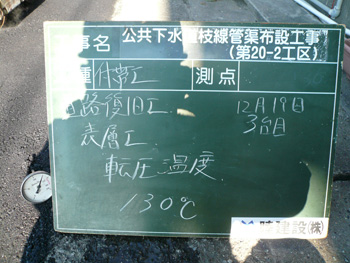 事名 公共下水道枝線管渠布設工事
(第20-2工区)
種 付帯工 測点
道路復旧工 12月19日
表層工 3台目
転圧温度
130℃
建設(株)